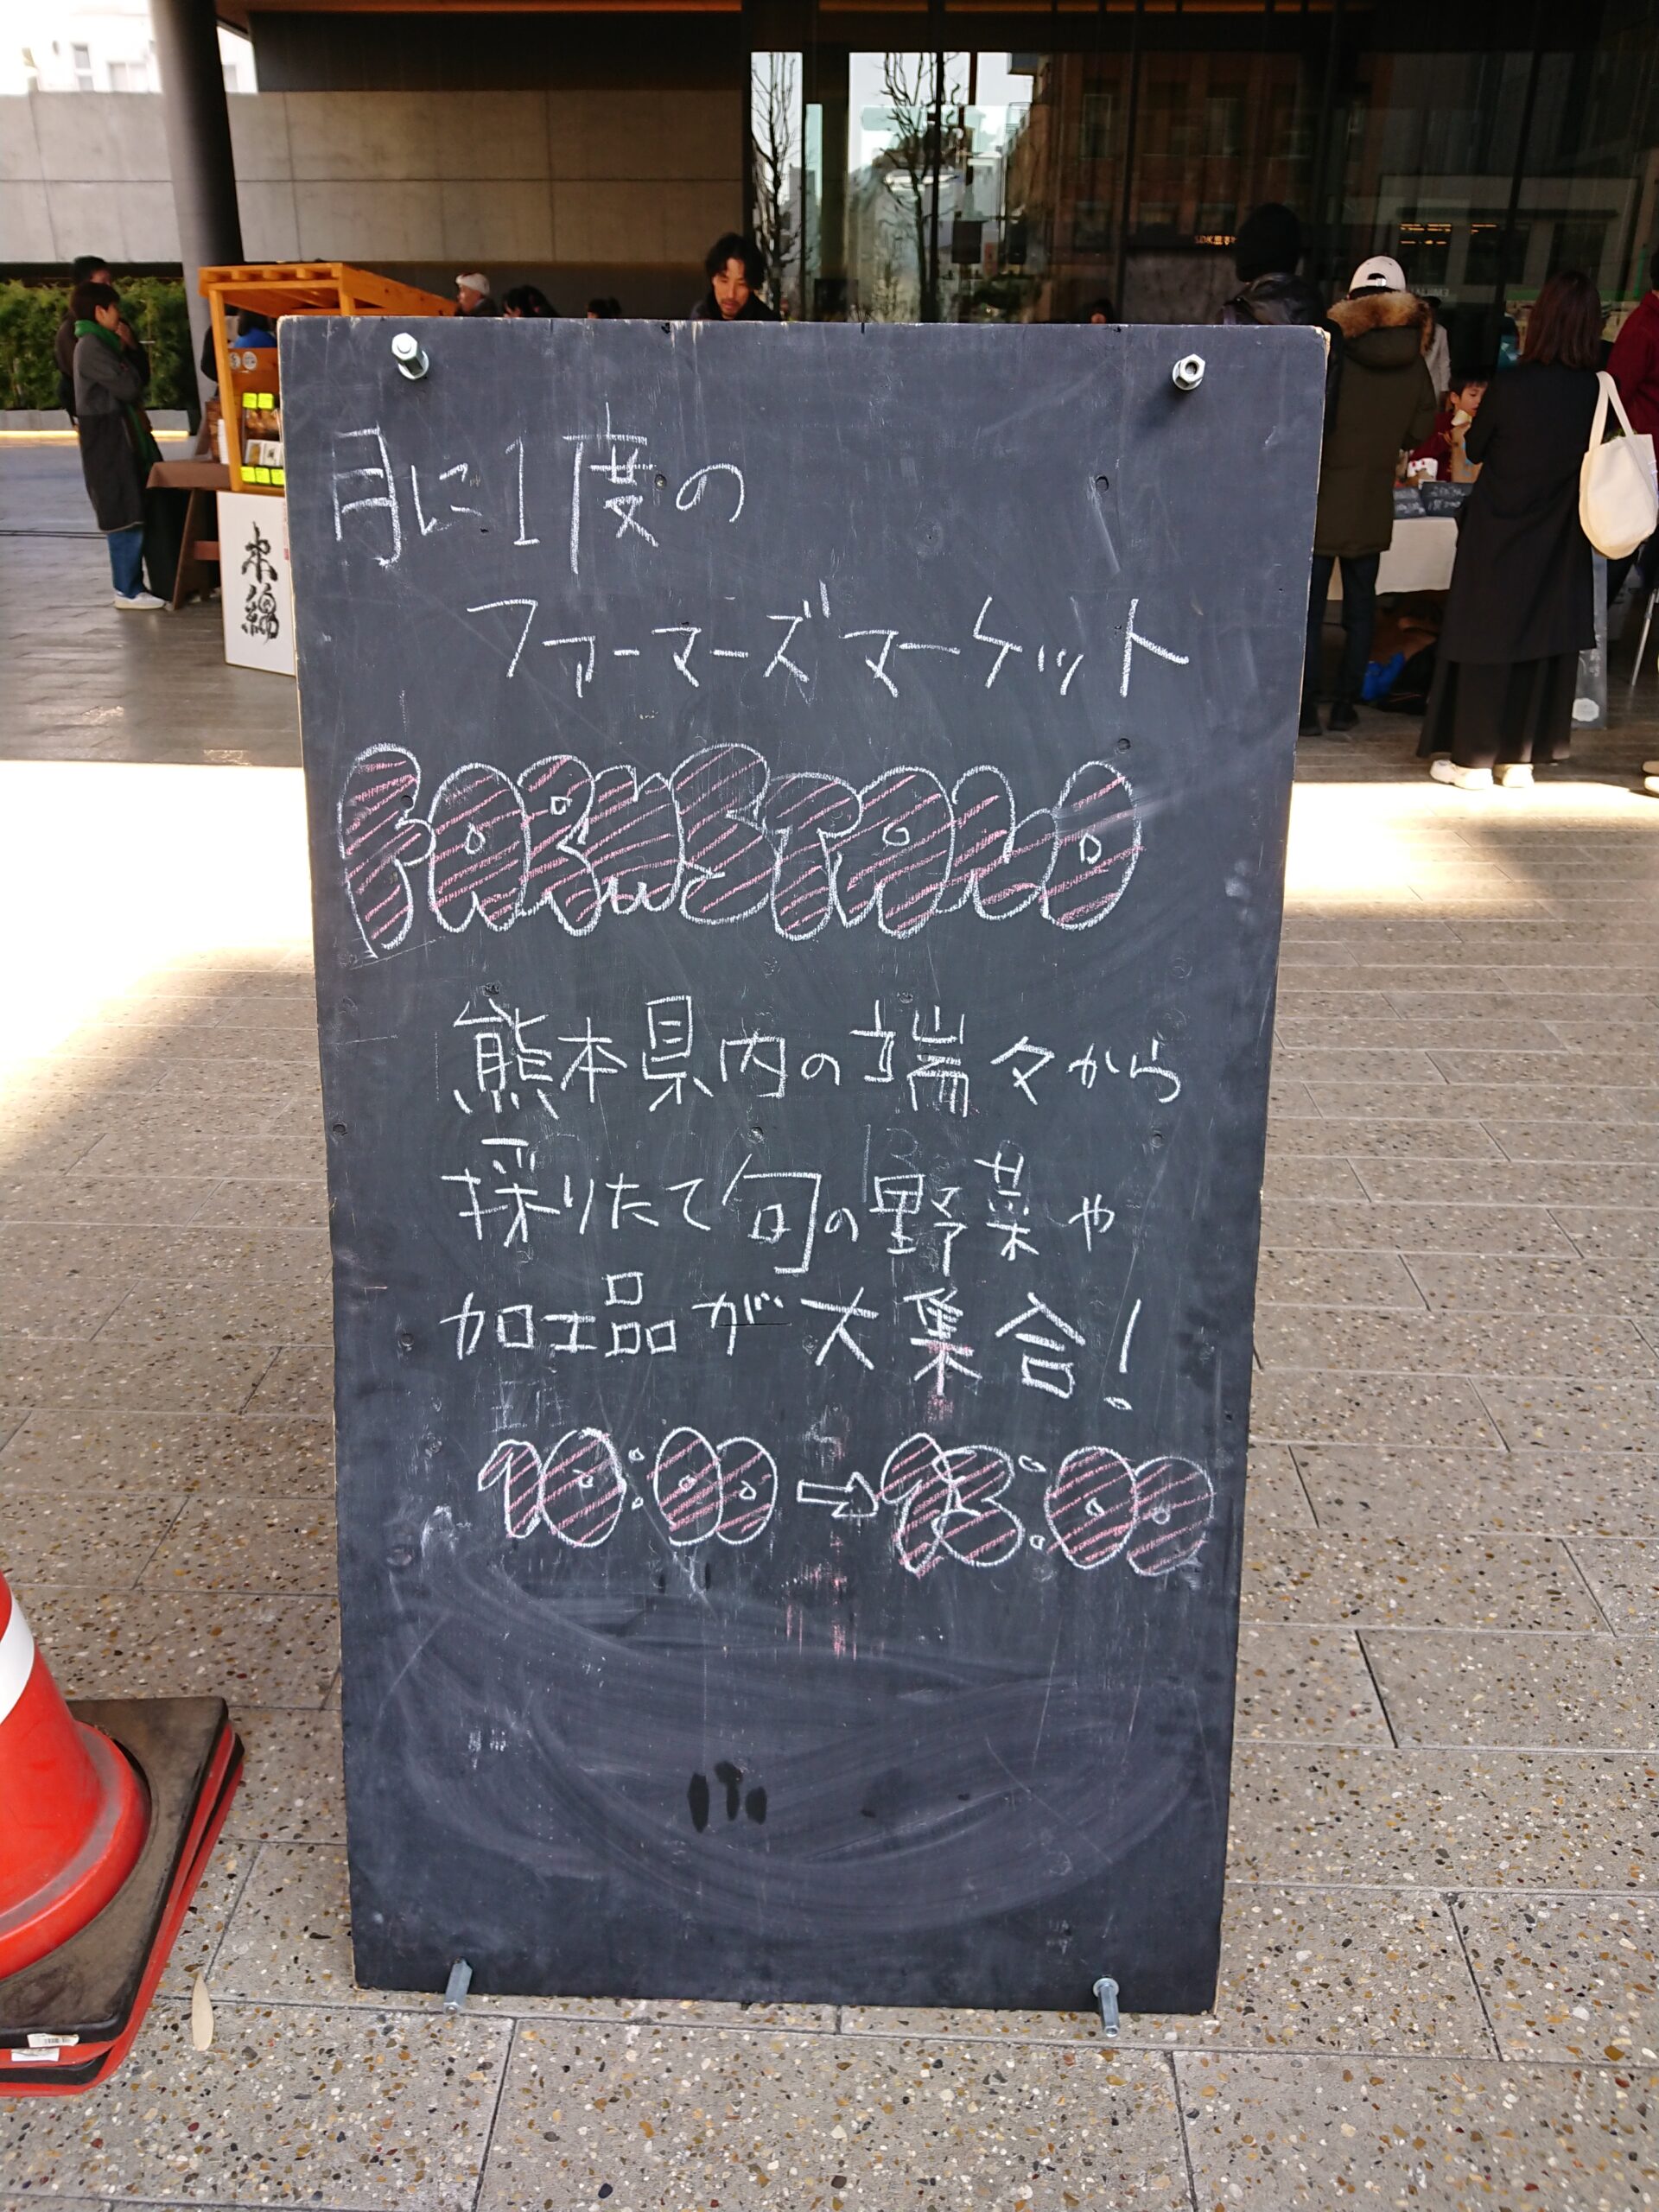 月に1度の
ファーマーズマーケット
FARMSTAND
熊本県内の端々から
採りたて旬の野菜や
加工品が大集合!
10:00→13:00